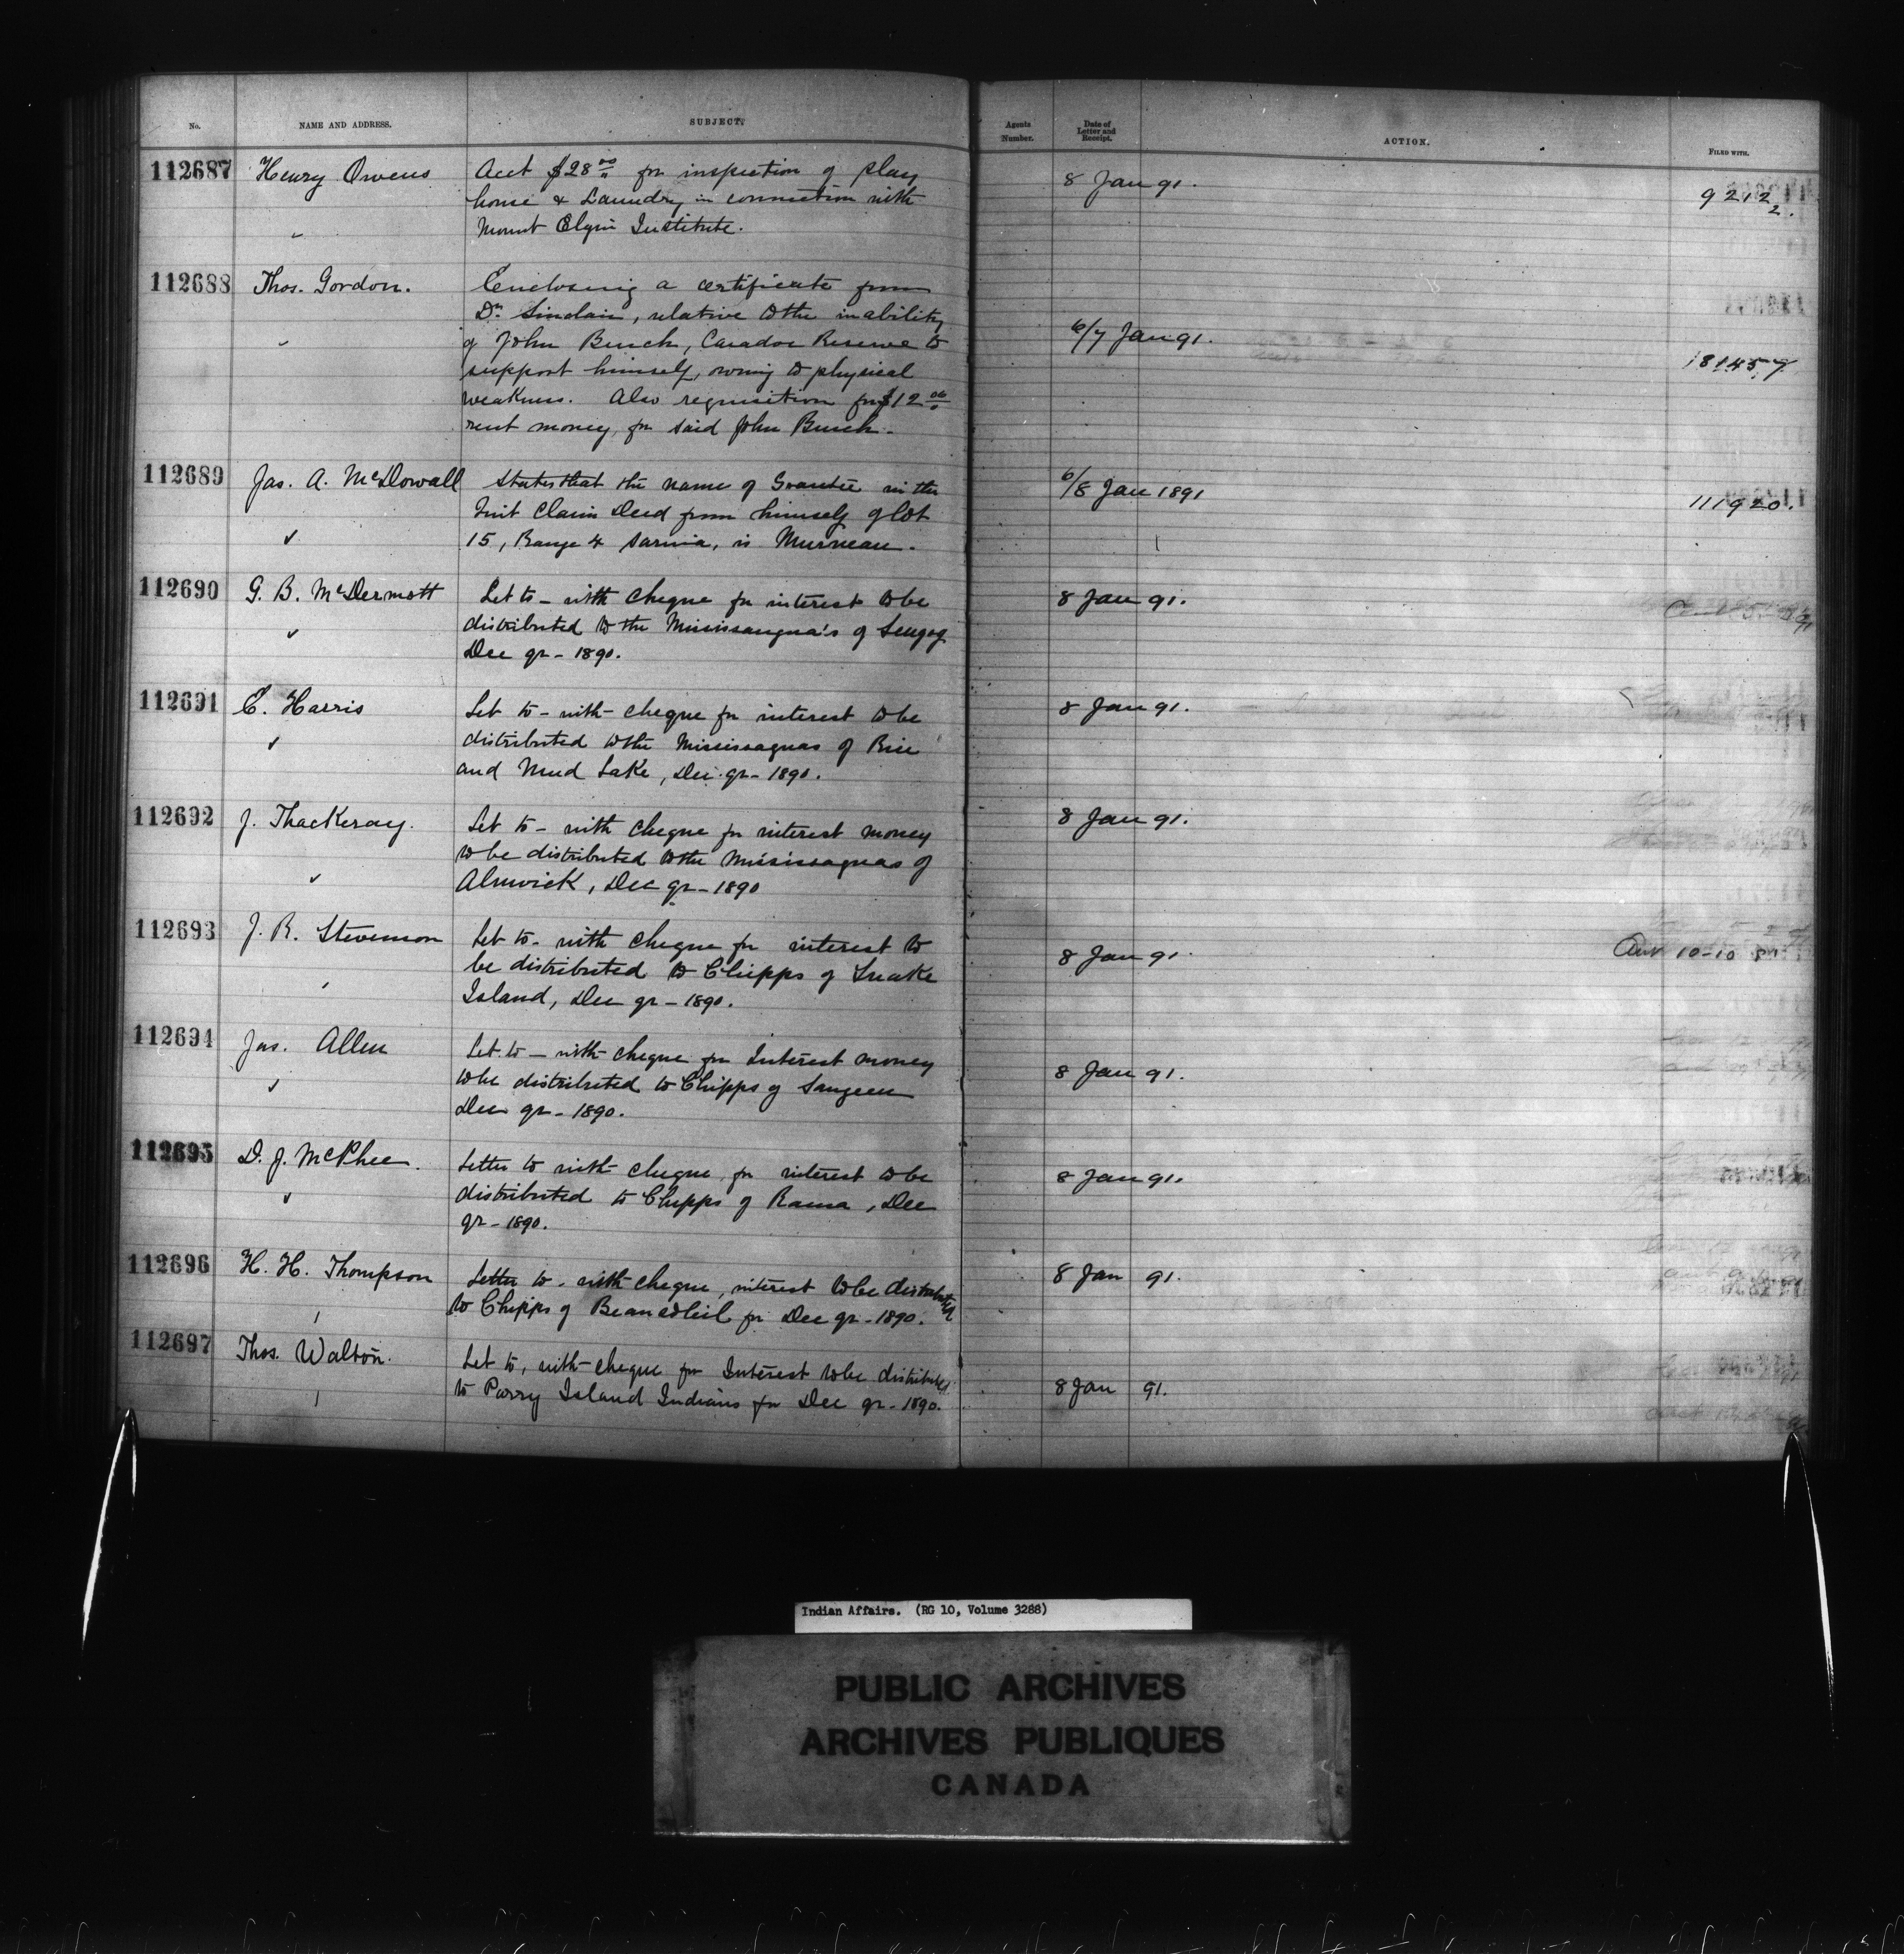 No. NAME AND ADDRESS. SUBJECT. Agents Number. Date of Letter and Receipt. ACTION. FILED WITH.
112687 Henry Owens Acct $28.00 for inspection of play 8 Jan 91. 9212
house & Laundry in connection with 2.
Mount Elgin Institute.
112688 Thos. Gordon. Enclosing a certificate from
Dr. Sinclair, relative to the inability
of John Burch, Caradoc Reserve to 6/7 Jan 91.
support himself, owing to physical 181457
weakness. Also requisition for $12.00
rent money, for said John Burch.
112689 Jas. A. McDowall States that the name of Grantee in the 6/8 Jan 1891
Quit Claim Deed from himself of lot 111920.
15, Range 4 Sarnia, is Murneau.
112690 G. B. McDermott Let to - with cheque for interest to be 8 Jan 91.
distributed to the Mississaugua's of Scugog
Dec qr - 1890.
112691 E. Harris Let to - with cheque for interest to be 8 Jan 91.
distributed to the Mississaguas of Rice
and Mud Lake, Dec. qr - 1890.
112692 J. Thackeray. Let to - with cheque for interest money 8 Jan 91.
to be distributed to the Mississaguas of
Alnwick, Dec qr - 1890
112693 J. R. Stevenson Let to - with cheque for interest to 8 Jan 91. 10-10
be distributed to Chipps of Snake
Island, Dec qr - 1890.
112694 Jas. Allen Let to - with cheque for Interest money
to be distributed to Chipps of Saugeen 8 Jan 91.
Dec qr - 1890.
112695 D. J. McPhee. Letter to with cheque for interest to be 8 Jan 91.
distributed to Chipps of Rama, Dec
qr - 1890.
112696 H. H. Thompson Letter to - with cheque, interest to be distributed 8 Jan 91.
to Chipps of Beausoleil for Dec qr - 1890.
112697 Thos. Walton. Let to, with cheque for Interest to be distributed
to Parry Island Indians for Dec qr - 1890. 8 Jan 91.
Indian Affairs. (RG 10, Volume 3288)
PUBLIC ARCHIVES
ARCHIVES PUBLIQUES
CANADA